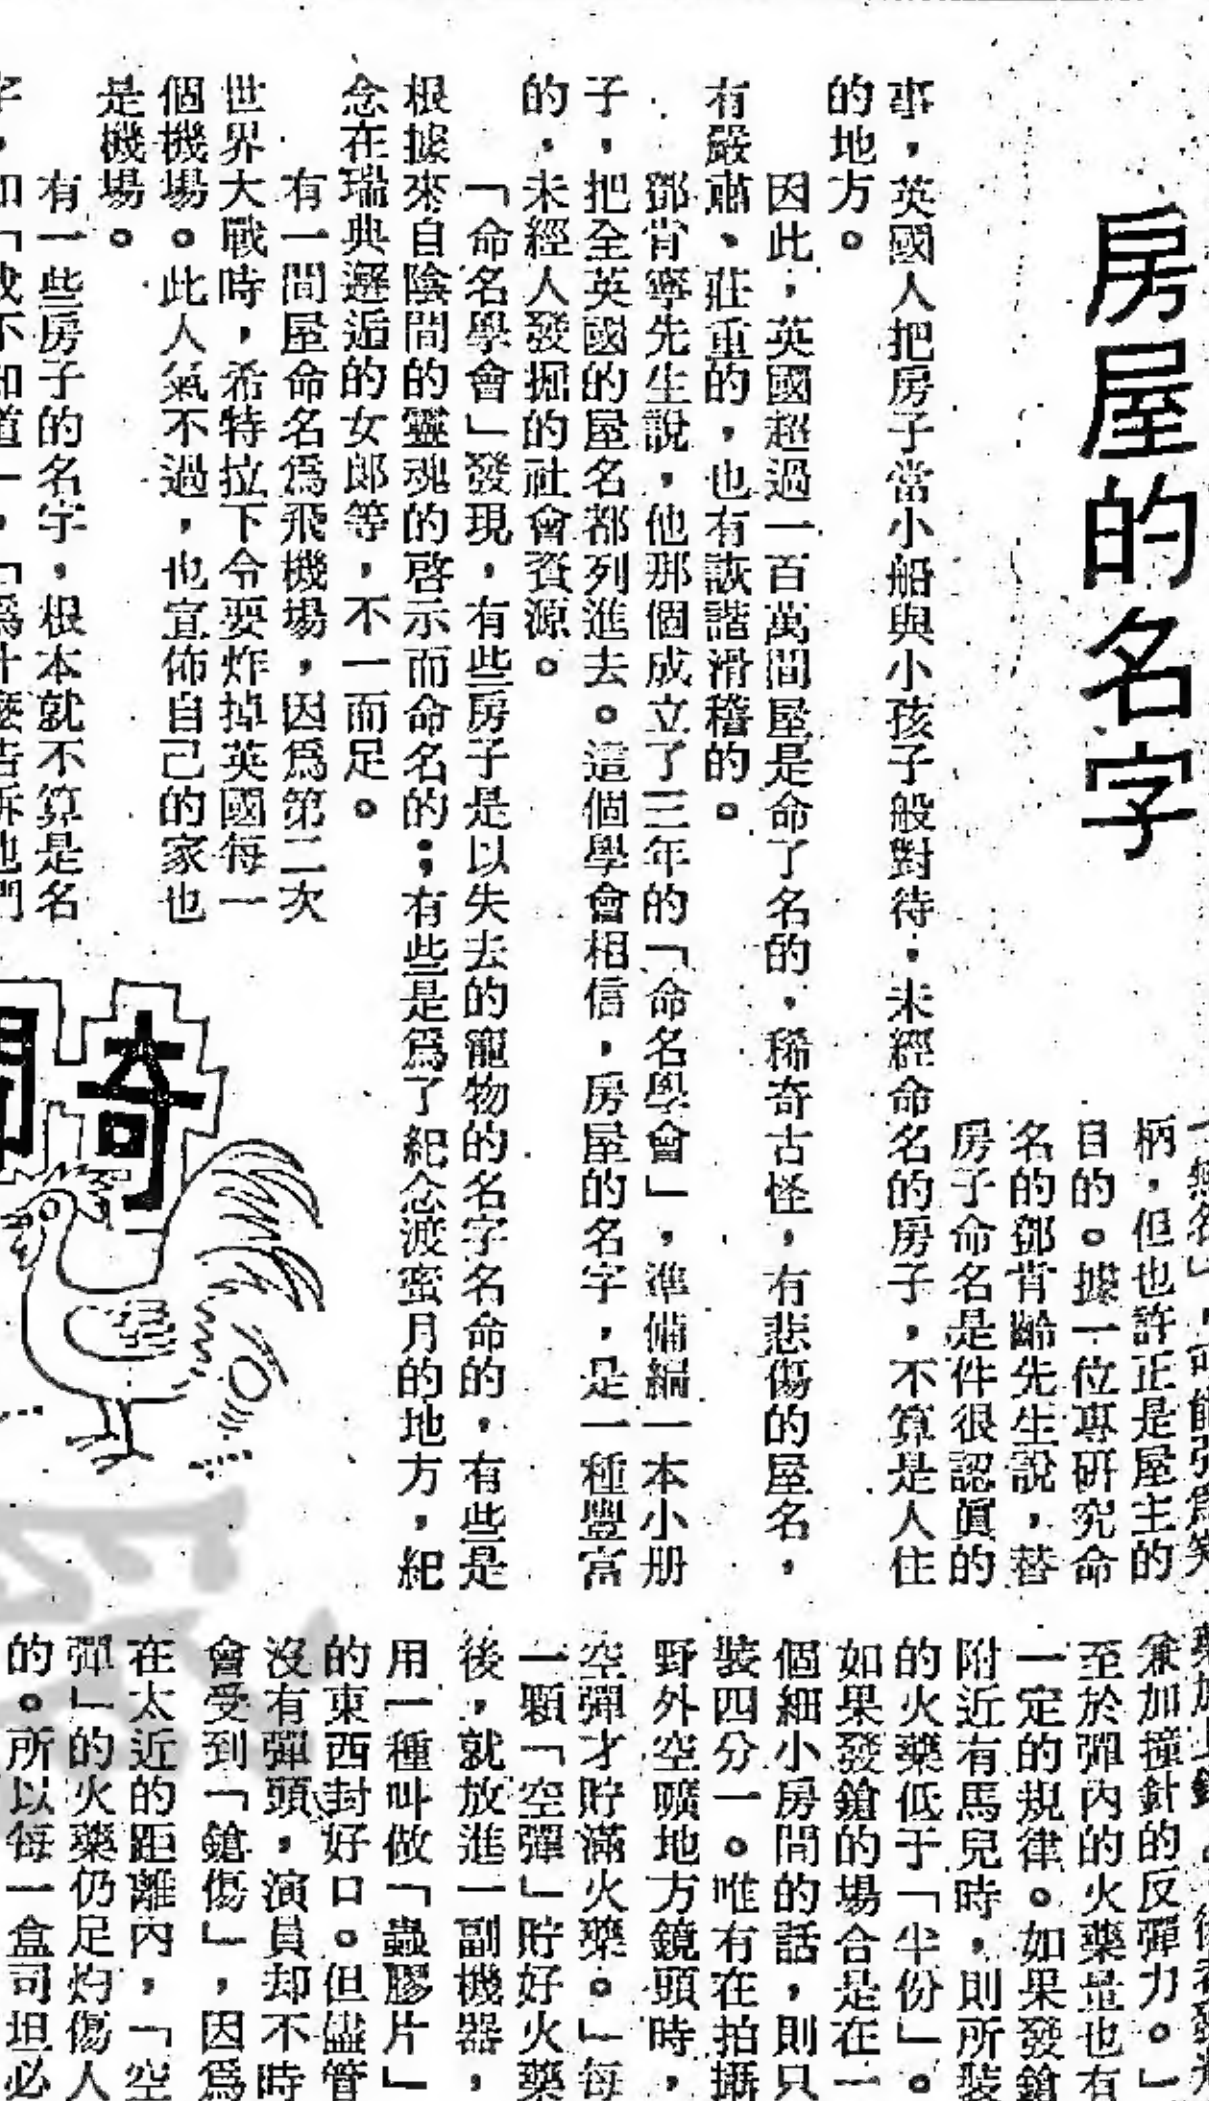 房屋的名字
柄，但也許正是屋主的
目的。據一位專研究命
名的鄧肯齡先生說，替
房子命名是件很認眞的
事，英國人把房子當小船與小孩子般對待，未經命名的房子，不算是人住
的地方。
因此，英國超過一百萬間屋是命了名的，稀奇古怪，有悲傷的屋名，
有嚴肅、莊重的，也有詼諧滑稽的。
鄧肯寧先生說，他那個成立了三年的「命名學會」，準備編一本小册
子，把全英國的屋名都列進去。這個學會相信，房屋的名字，是一種豐富
的，未經人發掘的社會資源。
「命名學會」發現，有些房子是以失去的寵物的名字名命的，有些是
根據來自陰間的靈魂的啓示而命名的；有些是爲了紀念渡蜜月的地方，紀
念在瑞典邂逅的女郎等，不一而足。
有一間屋命名爲飛機場，因爲第二次
世界大戰時，希特拉下令要炸掉英國每一
個機場。此人氣不過，也宣佈自己的家也
是機場。
有一些房子的名字，根本就不算是名
奇
兼加撞針的反彈力。」
至於彈內的火藥量也有
一定的規律。如果發鎗
附近有馬兒時，則所裝
的火藥低于「半份」。
如果發鎗的場合是在一
個細小房間的話，則只
裝四分一。唯有在拍攝
野外空曠地方鏡頭時，
空彈才貯滿火藥。」每
一顆「空彈」貯好火藥
後，就放進一副機器，
用一種叫做「蟲膠片」
的東西封好口。但儘管
沒有彈頭，演員却不時
會受到「鎗傷」，因爲
在太近的距離內，「空
彈」的火藥仍足灼傷人
的。所以每一盒司坦必